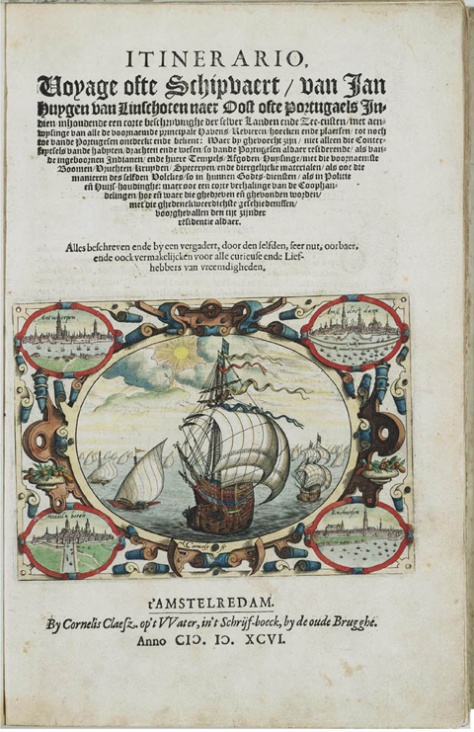 ITINERARIO,
Voyage ofte Schipvaert / van Jan
Huygen van Linschoten naer Oost ofte Portugaels In-
dien inhoudende een corte beschryvinghe der selver Landen ende Zee-custen / met aen-
wysinge van alle de voornaemde principale Havens Revieren hoecken ende plaetsen / tot noch
toe vande Portugesen ontdeckt ende bekent: Waer by ghevoecht zijn / niet alleen die Conter-
feytsels vande habyten drachten ende wesen so vande Portugesen aldaer residerende / als van-
de ingeboornen Indianen / ende huere Tempels Afgoden Huysinge / met die voornaemste
Boomen Vruchten Kruyden Speceryen ende diergelijcke materialen / als ooc die
manieren des selfden Volckes so in hunnen Godts-diensten / als in Politie
eñ Huijs-houdinghe: maer ooc een corte verhalinge van de Coophan-
delingen hoe eñ waer die ghedreven eñ ghevonden worden /
met die ghedenckweerdichste geschiedenissen /
voorghevallen den tijt zijnder
residentie aldaer.
Alles beschreven ende by een vergadert, door den selfden, seer nut, oorbaer,
ende oock vermakelijcken voor alle curieuse ende Lief-
hebbers van vreemdigheden.
Antwerpen
Amstelredam
Middelborch
Enchuysen
t'AMSTELREDAM.
By Cornelis Claesz. op't VVater, in't Schrijf-boeck, by de oude Brugghe.
Anno CIↃ. IↃ. XCVI.